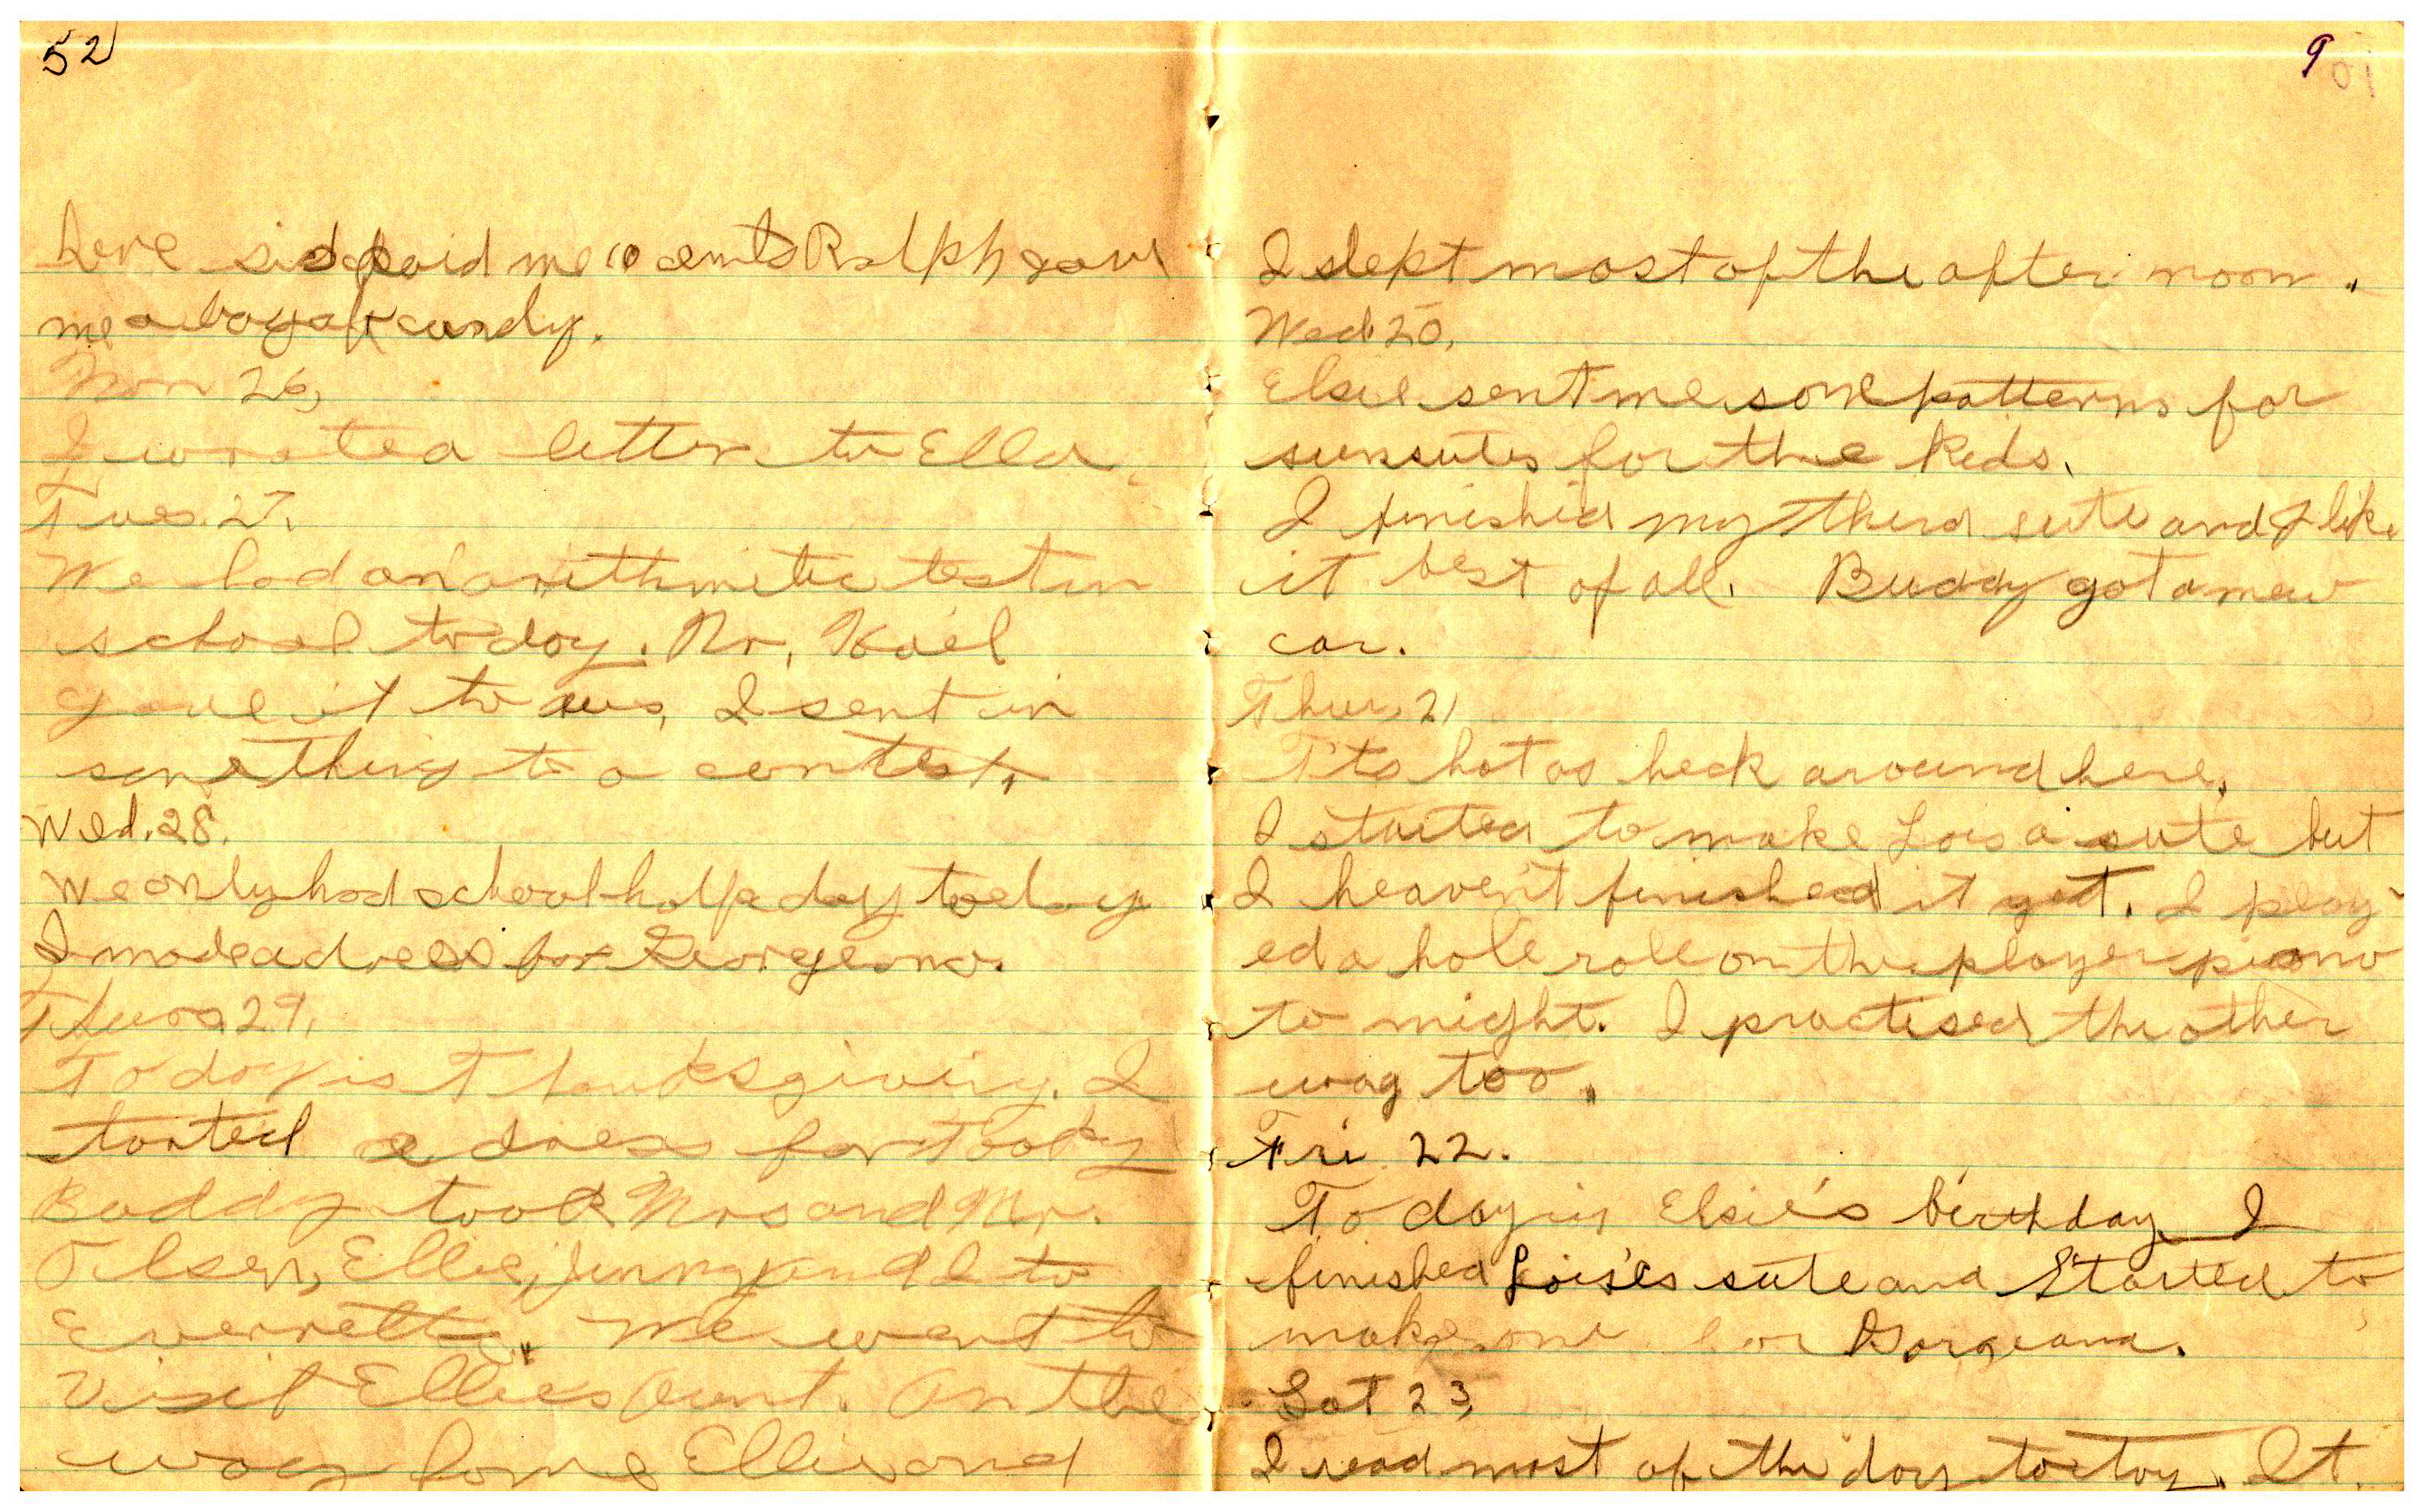 52
here sid paid me 10 cents Ralph gave
me a bag of candy.
Mon 26,
I wrote a letter to Ella.
Tues. 27.
We had an arithmitic test in
school today. Mr,
gave it to us, I sent in
something to a contest.
Wed. 28.
We only had school half a day today
I made a dress for Georgeana.
Thurs 29,
Today is Thanksgiving. I
started a dress for Tooky
Buddy took Mrs and Mr.
Olsen, Ellie, Jenny and I to
Everretts. We went to
Visit Ellies Aunt. On the
way home Ellie and
9
I slept most of the after noon.
Wed. 20.
Elsie sent me some patterns for
sunsutes for the kids.
I finished my third sute and I like
it best of all. Buddy got a new
car.
Thur. 21
It's hot as heck around here.
I started to make Lois a sute but
I heaven't finished it yet. I play-
ed a hole role on the player piano
to night. I practised the other
way too.
Fri 22.
To day is Elsie's birthday I
finished Lois's sute and started to
make one for Gorgeana.
Sat 23,
I read most of the day today. It